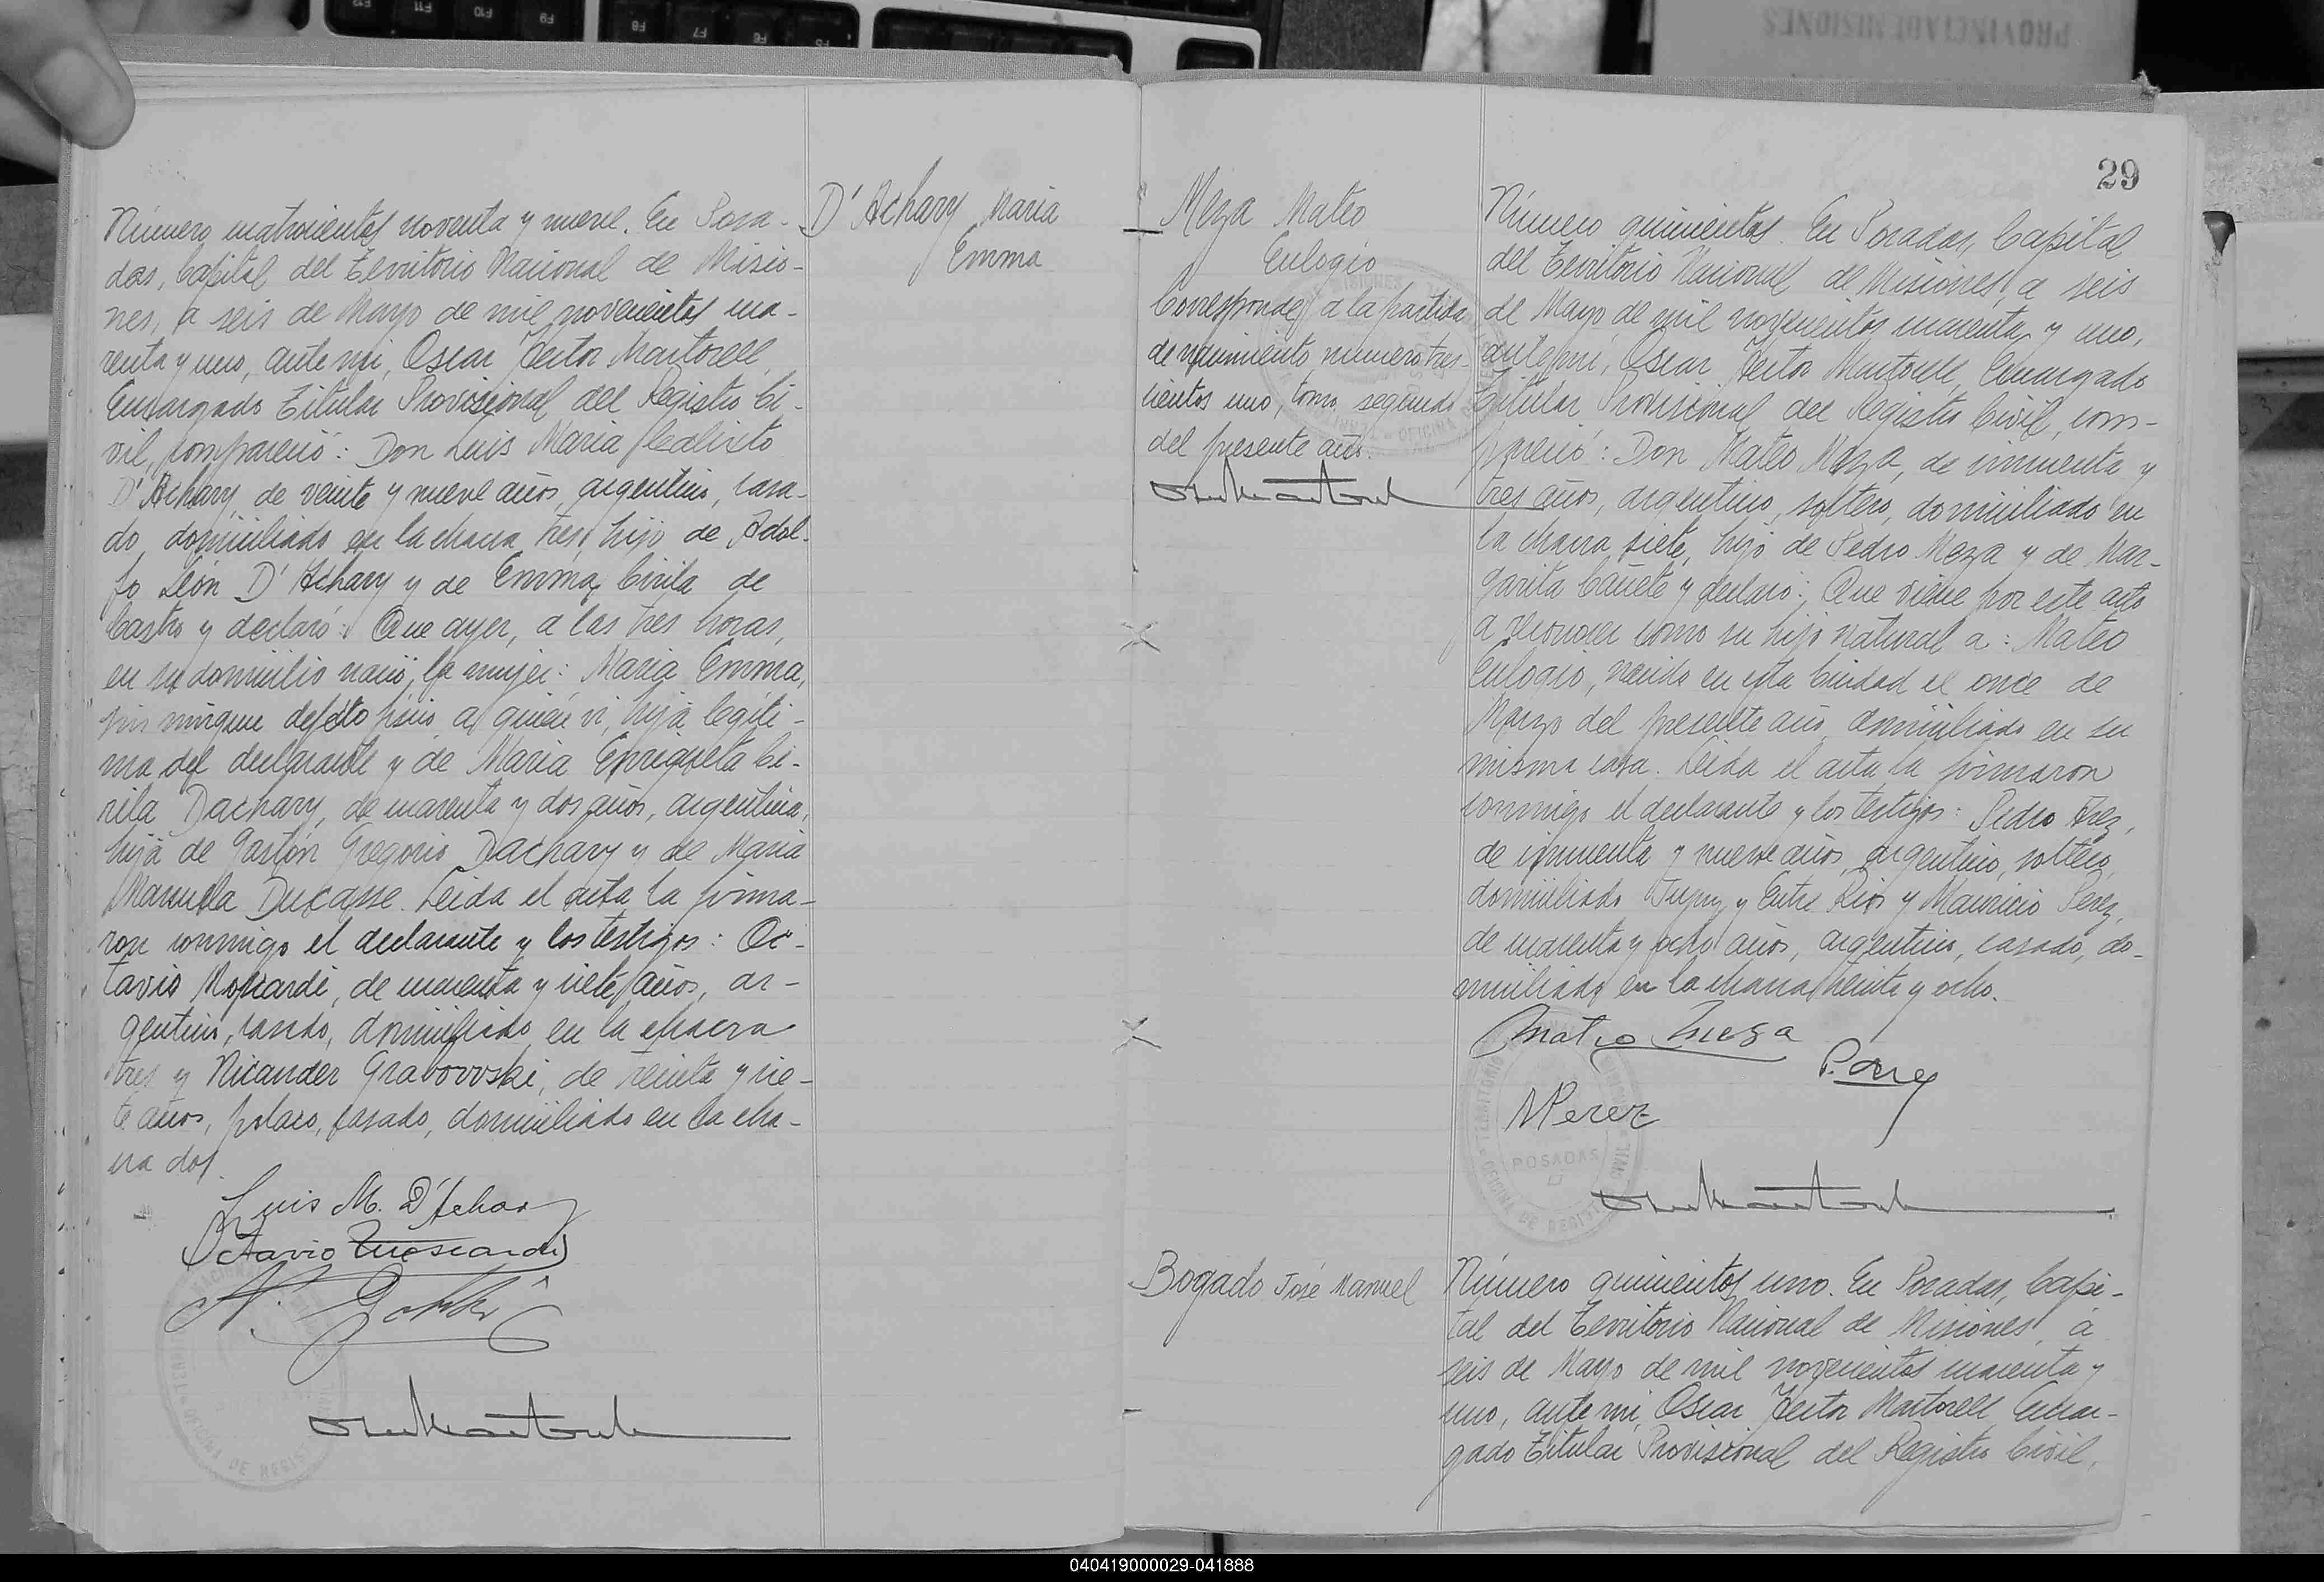 Número cuatrocientos noventa y nueve. En Posa-
das, Capital del Territorio Nacional de Misio-
nes, a seis de Mayo de mil novecientos cua-
renta y uno, ante mi, Oscar Héctor Martorell,
Encargado Titular Provisional del Registro Ci-
vil, compareció: Don Luis Maria Calixto
D'Achary, de veinte y nueve años, argentino, casa-
do, domiciliado en la chacra tres, hijo de Adol-
fo León D'Achary y de Emma Cirila de
Castro y declaró: Que ayer, a las tres horas,
en su domicilio nació, la mujer: Maria Emma,
sin ningun defecto fisico, a quién vi, hija legiti-
ma del declarante y de Maria Enriqueta Ci-
rila Dachary, de cuarenta y dos años, argentina,
hija de Gastón Gregorio Dachary y de Maria
Manuela Ducasse. Leida el acta la firma-
ron conmigo el declarante y los testigos: Oc-
tavio Moscardi, de cuarenta y siete años, ar-
gentino, casado, domiciliado en la chacra
tres y Nicander Grabovoski, de treinta y sie-
te años, polaco, casado, domiciliado en la cha-
cra dos.
Luis M. D'Achary
Octavio Moscardi
D'Achary Maria
Emma
29
Meza Mateo
Eulogio
Corresponde a la partida
de nacimiento numero tres-
cientos uno, tomo segundo
del presente año.
Número quinientos. En Posadas, Capital
del Territorio Nacional de Misiones, a seis
de Mayo de mil novecientos cuarenta y uno,
ante mi, Oscar Héctor Martorell, Encargado
Titular Provisional del Registro Civil, com-
pareció: Don Mateo Meza, de cincuenta y
tres años, argentino, soltero, domiciliado en
la chacra siete, hijo de Pedro Meza y de Mar-
garita Cañete y declaró: Que viene por este acto
a reconocer como su hijo natural a: Mateo
Eulogio, nacido en esta Ciudad el once de
Marzo del presente año, domiciliado en su
misma casa. Leida el acta la firmaron
conmigo el declarante y los testigos: Pedro
de cincuenta y nueve años, argentino, soltero,
domiciliado Jujuy y Entre Rios y Mauricio Perez,
de cuarenta y ocho años, argentino, casado, do-
miciliado en la chacra treinta y ocho.
Mateo Meza
MPerez
POSADAS
Bogado José Manuel
Número quinientos uno. En Posadas, Capi-
tal del Territorio Nacional de Misiones, a
seis de Mayo de mil novecientos cuarenta y
uno, ante mi, Oscar Héctor Martorell, Encar-
gado Titular Provisional del Registro Civil,
PROVINCIA DE MISIONES
040419000029-041888